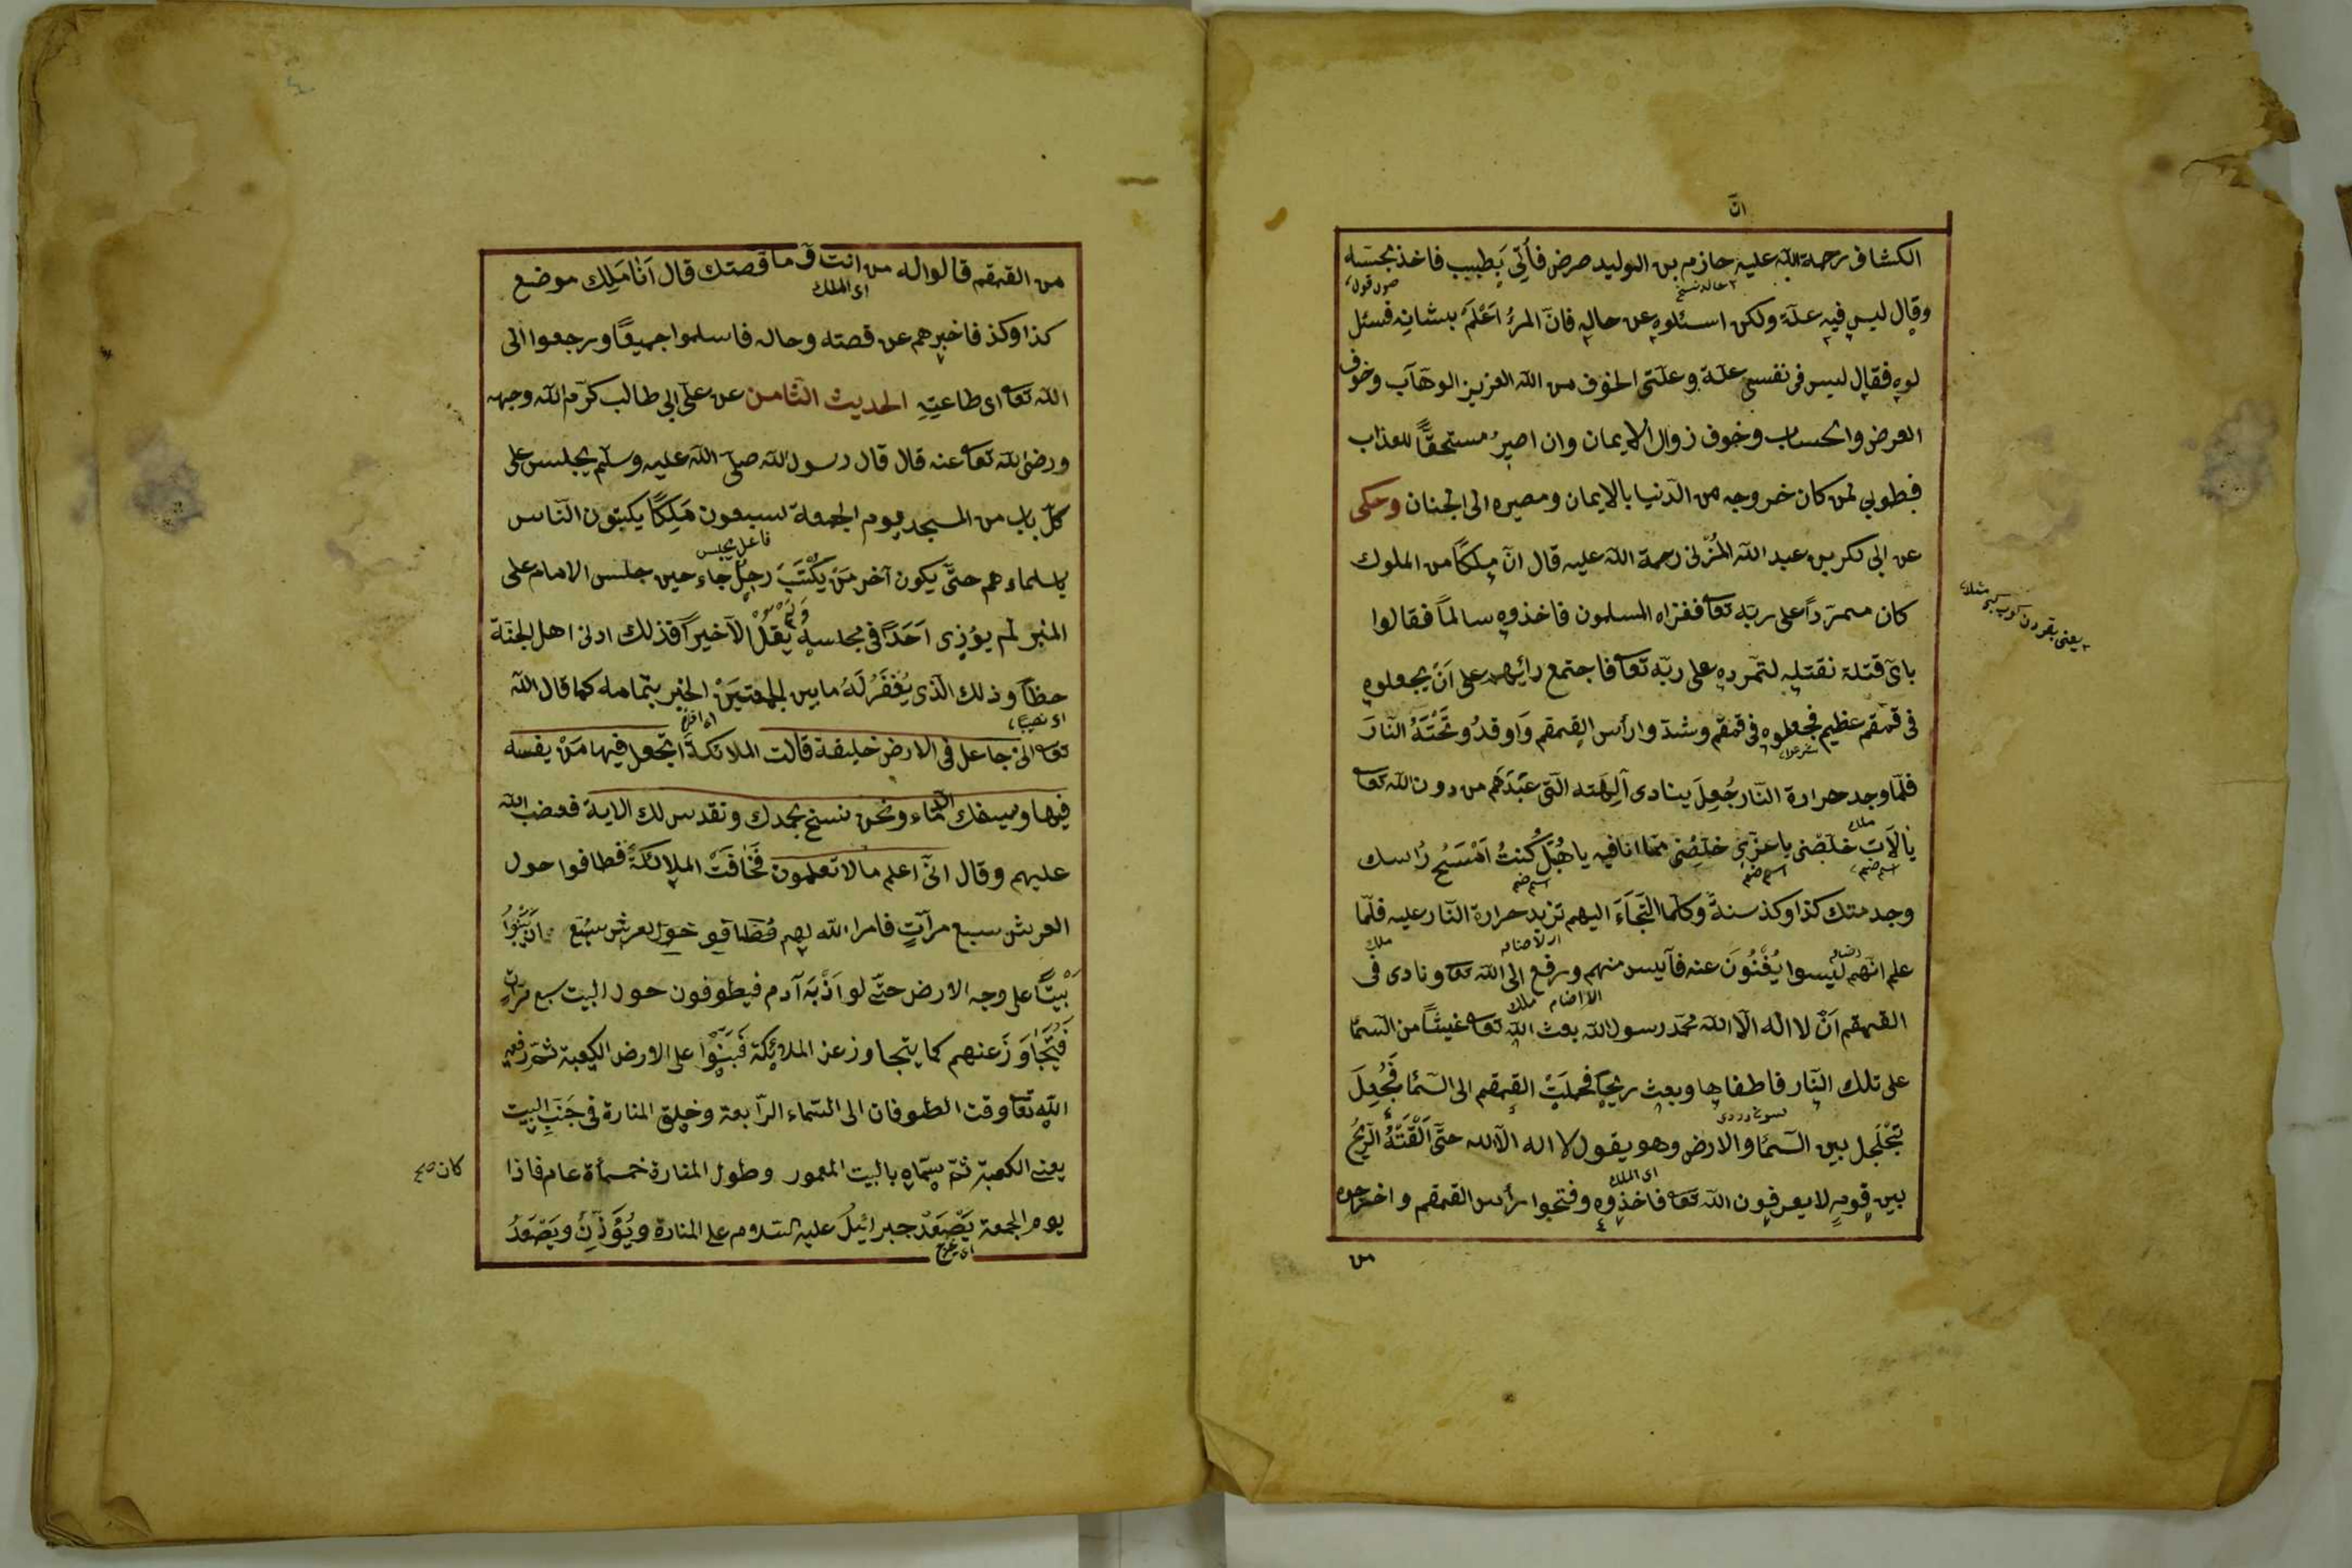 انّ
الكشاف رحمة الله عليه حازم بن الوليد مرض فأتى بطبيب فاخذ بجسسه
وقال ليس فيه علة ولكن اسئلوه عن حاله فانّ المرءُ اَعْلَمُ بشانه فسئل
لوه فقال ليس فى نفسى علة وعلتى الخوف من الله العزيز الوهّاب وخوف
العرض والحساب وخوف زوال الايمان وان اصيرُ مستحقًّا للعذاب
فطوبى لمن كان خروجه من الدّنيا بالايمان ومصيره الى الجنان وحكى
عن ابى بكر بن عبد الله المُزنى رحمة الله عليه قال انّ ملكًا من الملوك
كان متمرّدًا على ربّه تعا فغزاه المسلمون فاخذوه سالمًا فقالوا
باىّ قتلة نقتله لتمرّده على ربّه تعا فاجتمع رائيهم على اَنْ يجعلوه
فى قمقم عظيم فجعلوه فى قمقم وشدّوا رأس القمقم وَاوقدُو تَحْتَهُ النّارَ
فلمّا وجد حرارة النّار جُعِلَ ينادى آلِهَته الّتى عَبَدَهُم من دون الله تعا
يا لَات خلّصنى يا عزّى خلّصنى ممّا انا فيه يا هُبَل كُنتُ اَمْسَحُ رأسك
وجدمتك كذا وكذ سنةً وكلّما التَجَاءَ اليهم تزيد حرارة النّار عليه فلمّا
علم انّهم ليسوا يُغْنُونَ عنه فآيس منهم ورفع الى الله تعا ونادى فى
القمقم اَنْ لا اله الّا الله محمّد رسول الله بعث الله تعا غيثًا من السّما
على تلك النّار فاطفاها وبعث ريحًا فحملَتْ القمقم الى السّما فَجُعِلَ
تجْلَجل بين السّما والارض وهو يقول لا اله الّا الله حتّى اَلْقَتَهُ الرّيحُ
بين قومٍ لا يعرفون الله تعا فاخذوه وفتحوا رأس القمقم واخرجوه
من
من القمقم قالوا له من انت وما قصتك قال اَنَا مَلِك موضع
اى الملك
كذا وكذ فاخبرهم عن قصته وحاله فاسلموا جميعًا ورجعوا الى
الله تعا اى طاعتِهِ الحديث الثّامن عن على ابى طالب كرّم الله وجهه
ورضى الله تعا عنه قال قال رسول الله صلّى الله عليه وسلّم يجلس على
كلّ باب من المسجد يوم الجمعة سبعون مَلِكًا يكتبون النّاس
فاعل يجلس
باسماءهم حتّى يكون آخر مَنْ يَكْتُبَ رجلٌ جاء حين جلس الامام على
المنبر لم يوُذى اَحَدًا فى مجلسه يَقُلْ الّا خيرًا فذلك ادنى اهل الجنّة
حظًّا وذلك الّذى يُغْفَرُ لَهُ ما بين الجمعتَينْ الخبر بتمامه كما قال الله
اى نصيبًا
تعا انى جاعل فى الارض خليفة قالت الملائكة اتجعل فيها مَنْ يفسد
فيها ويسفك الدّماء ونحن نسبّح بحمدك ونقدس لك الاية فغضب الله
عليهم وقال انّى اعلم ما لا تعلمون فَخَافَتْ الملائكة فطافوا حول
العرش سبع مرآتٍ فامر الله لهم فطافو حول العرش سبع اَنْ يَبْنُوا
بَيْتًا على وجه الارض حتّى لو اَذْنَبَ آدم فيطوفون حول البيت سبع مرّات
فَيُتَجَاوَزَ عنهم كما يتجاوز عن الملائكة فَبَنَوْا على الارض الكعبة ثمّ رفعه
الله تعا وقت الطوفان الى السّماء الرّابعة وخلق المنارة فى جَنَبِ البيت
يعنى الكعبة ثمّ سمّاه بالبيت المعمور وطول المنارة خمسمأة عام فاذا
كان
يوم الجمعة يَصْعَدْ جبرائيلُ عليه السّلام على المنارة ويُؤَذِّنْ ويَصْعَدُ